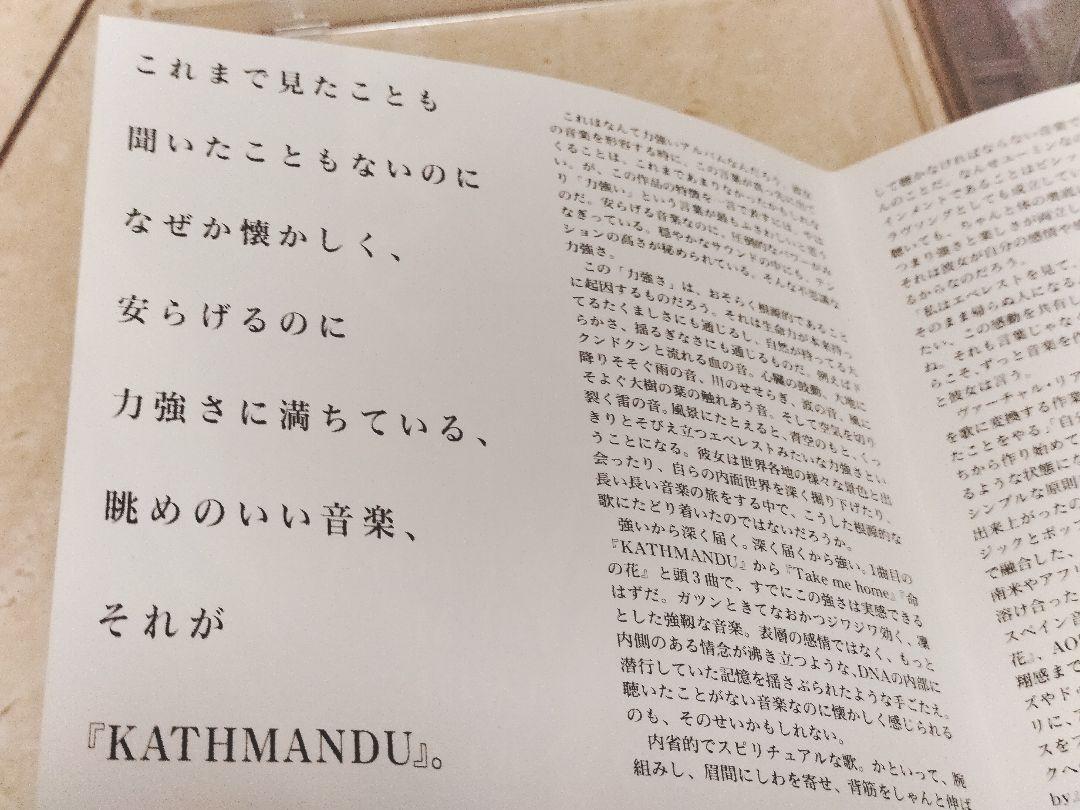 これまで見たことも
聞いたこともないのに
なぜか懐かしく、
安らげるのに
力強さに満ちている、
眺めのいい音楽、
それが
『KATHMANDU』。
これはなんて力強いアルバムなんだろう。彼女
の音楽を形容する時に、この言葉が真っ先に出て
くることは、これまであまりなかったかもしれな
い。が、この作品の特徴を一言で表すには、やは
り「力強い」という言葉が最もふさわしいと思う
のだ。安らげる音楽なのに、圧倒的なパワーがみ
なぎっている。穏やかなサウンドの中にも、テン
ションの高さが秘められている。そんな不思議な
力強さ。
この「力強さ」は、おそらく根源的であること
に起因するものだろう。それは生命力が本来持っ
てるたくましさにも通じるし、自然が持ってる大
らかさ、揺るぎなさにも通じるものだ。例えばド
クンドクンと流れる血の音。心臓の鼓動、大地に
降りそそぐ雨の音、川のせせらぎ、波の音、風に
そよぐ大樹の葉の触れあう音。そして空気を切り
裂く雷の音。風景にたとえると、青空のもと、くっ
きりとそびえ立つエベレストみたいな力強さとい
うことになる。彼女は世界各地の様々な景色と出
会ったり、自らの内面世界を深く掘り下げたり、
長い長い音楽の旅をする中で、こうした根源的な
歌にたどり着いたのではないだろうか。
強いから深く届く。深く届くから強い。1曲目の
『KATHMANDU』から『Take me home』『命
の花』と頭3曲で、すでにこの強さは実感できる
はずだ。ガツンときてなおかつジワジワ効く、凜
とした強靱な音楽。表層の感情ではなく、もっと
内側のある情念が沸き立つような、DNAの内部に
潜行していた記憶を揺さぶられたような手ごたえ。
聴いたことがない音楽なのに懐かしく感じられる
のも、そのせいかもしれない。
内省的でスピリチュアルな歌。かといって、腕
組みし、眉間にしわを寄せ、背筋をしゃんと伸ば
して聴かなければならない音楽で
んのことだ。なんせユーミンなの
インメントであることはピシッ
ラヴソングとしても成立してい
聴いても、ちゃんと体の奥底に
つまり強さと楽しさが両立し
それは彼女が自分の感情や
るからなのだろう。
「私はエベレストを見て、
そのまま帰らぬ人になる
たい。この感動を共有し
ね。それも言葉じゃな
らこそ、ずっと音楽を作
と彼女は言う。
ヴァーチャル・リア
を歌に変換する作業
たことをやる。「自分
ちから作り始めて
るような状態にな
シンプルな原則
出来上がったの
ジックとポップ
で融合した、
南米やアフリ
溶け合った
スペイン音
花』、AO
翔感まで
ズやド
りに、
スをフ
クヘ
by